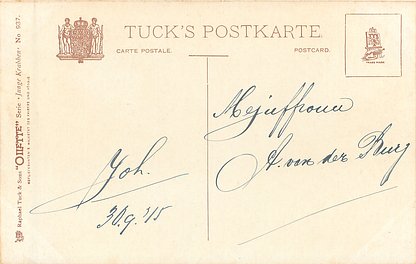 TUCK'S POSTKARTE.
CARTE POSTALE.
POSTCARD.
TRADE MARK
Raphael Tuck & Sons "OILETTE" Serie „Junge Krabben" No. 937.
Joh.
30.9.'15
Mejuffrouw
A. van der Burg